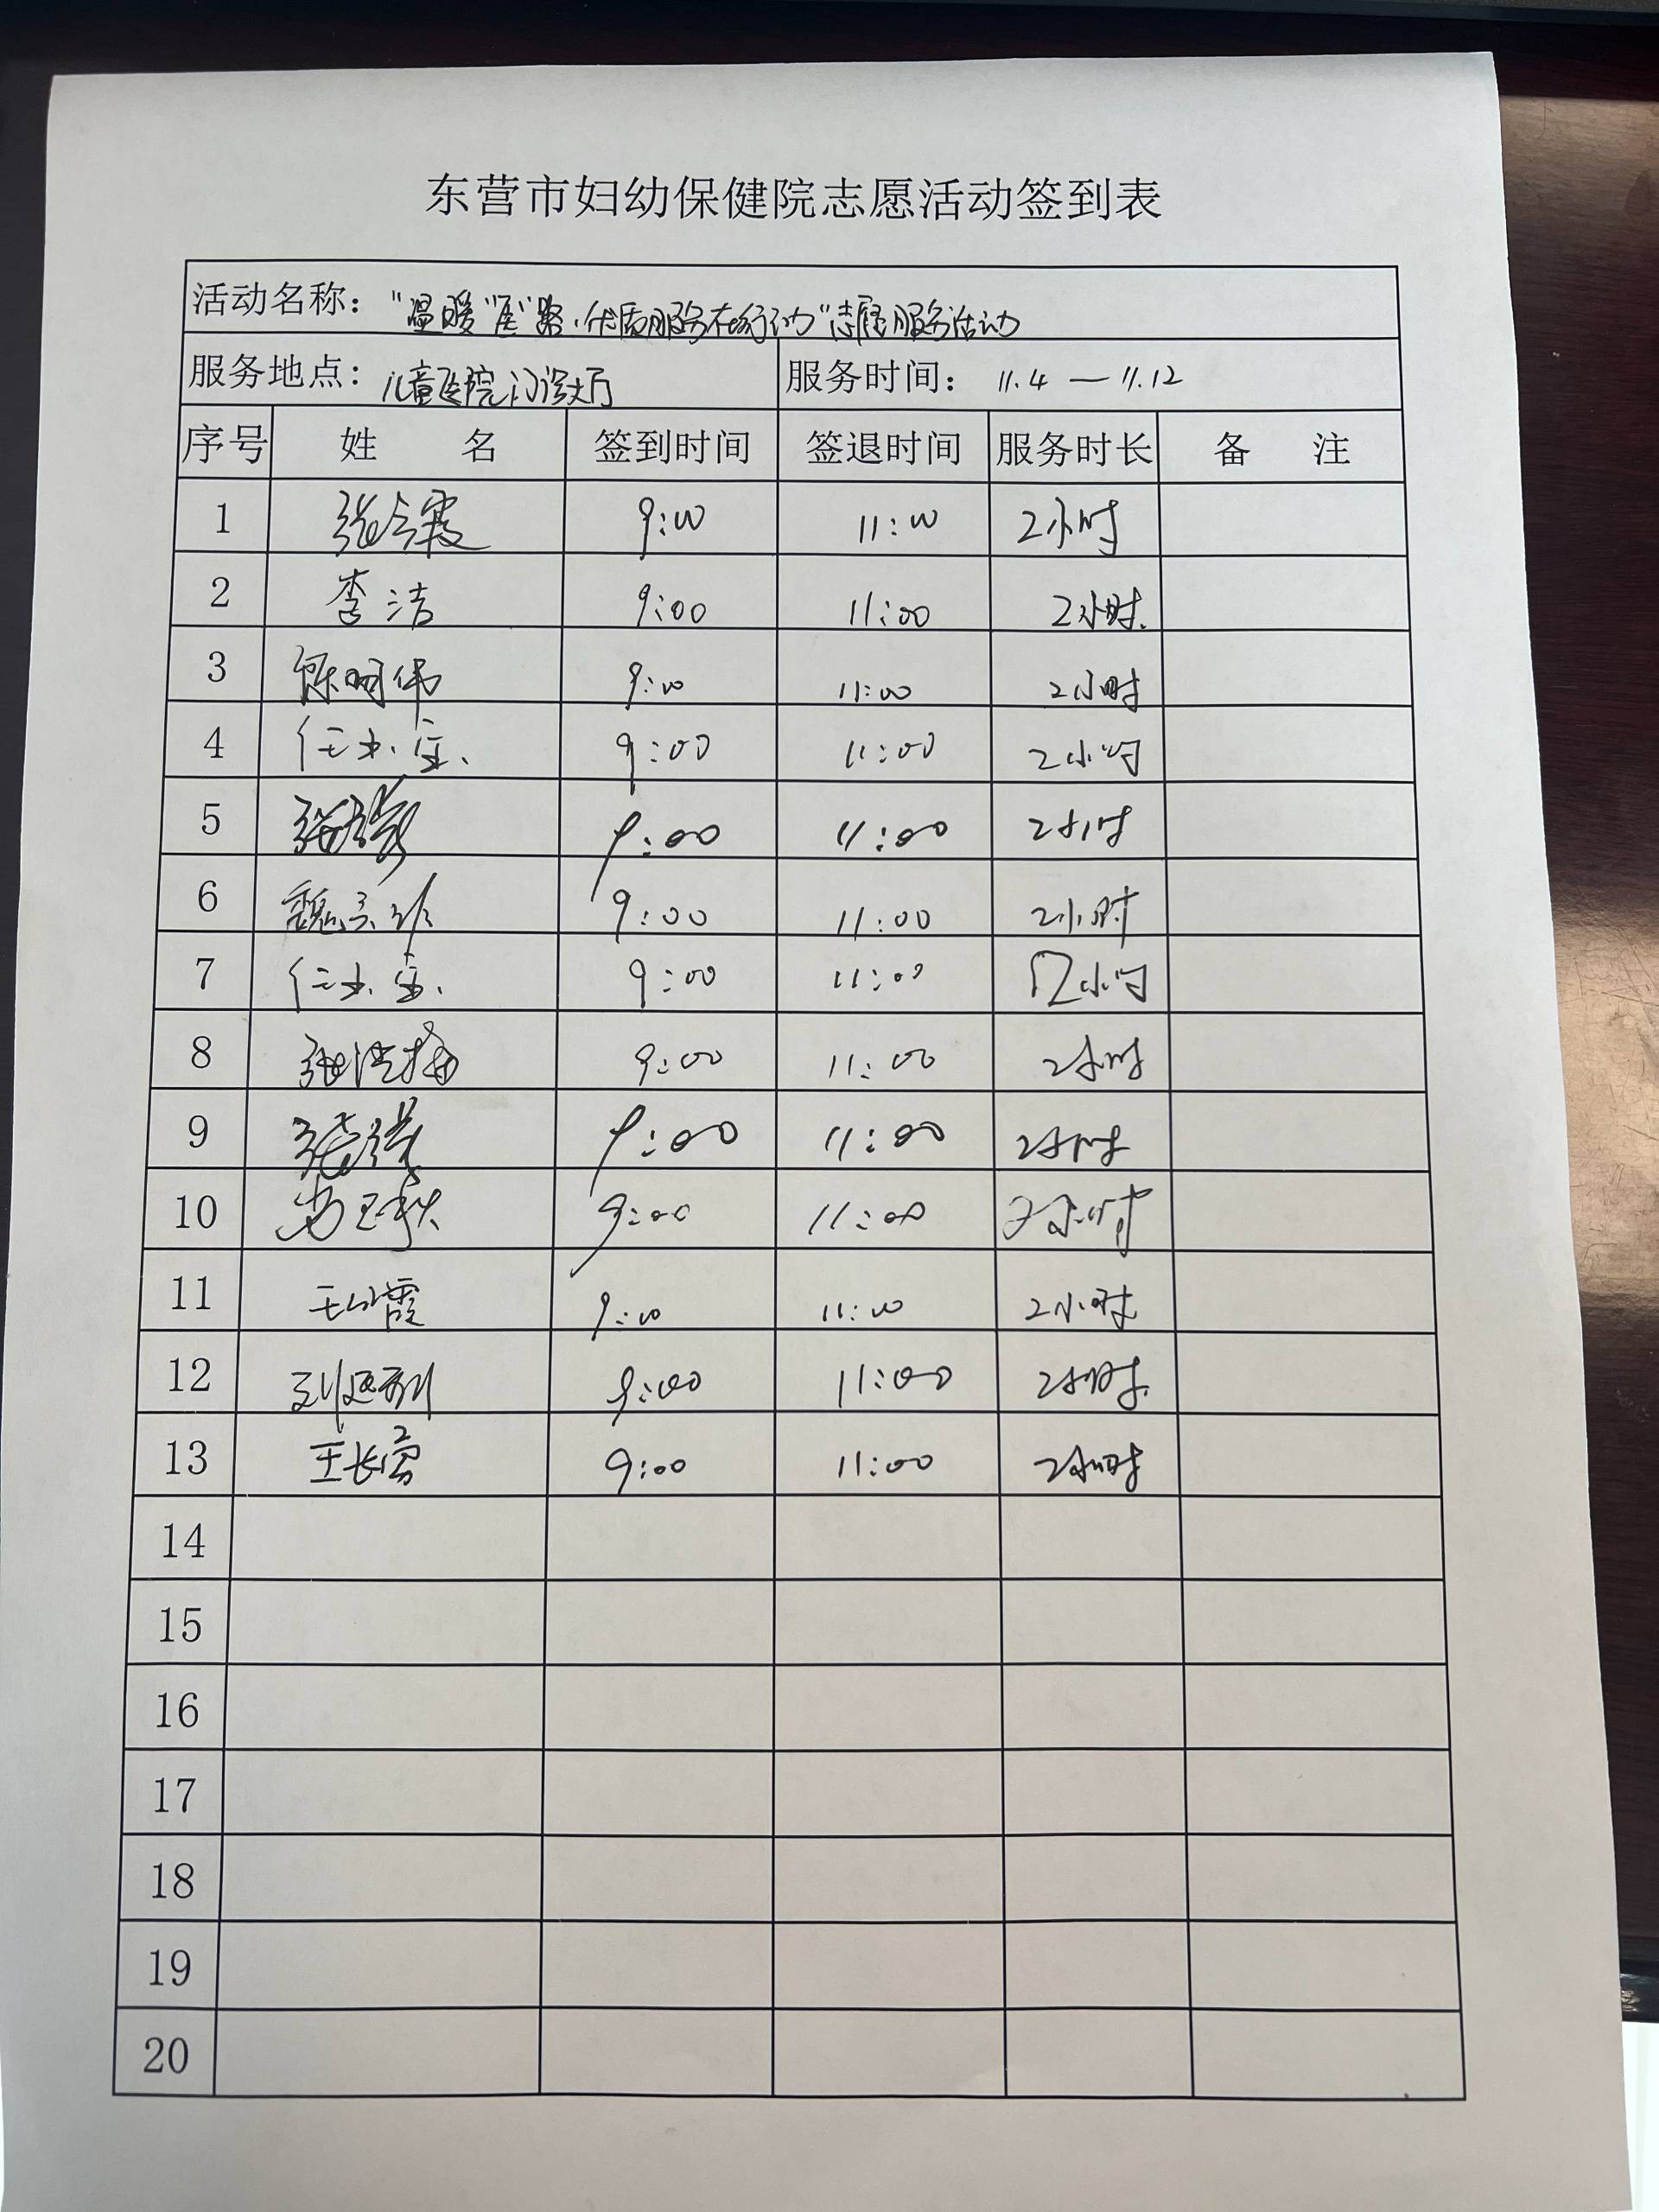 东营市妇幼保健院志愿活动签到表
活动名称：“温暖“医”路·优质服务在行动”志愿服务活动
服务地点：儿童医院门诊大厅 服务时间：11.4—11.12
序号 姓 名 签到时间 签退时间 服务时长 备 注
1 张令霞 9:00 11:00 2小时
2 李洁 9:00 11:00 2小时.
3 陈明伟 9:00 11:00 2小时
4 9:00 11:00 2小时
5 9:00 11:00 2小时
6 9:00 11:00 2小时
7 9:00 11:00 2小时
8 9:00 11:00 2小时
9 9:00 11:00 2小时
10 9:00 11:00 2小时
11 9:00 11:00 2小时
12 9:00 11:00 2小时.
13 9:00 11:00 2小时
14
15
16
17
18
19
20